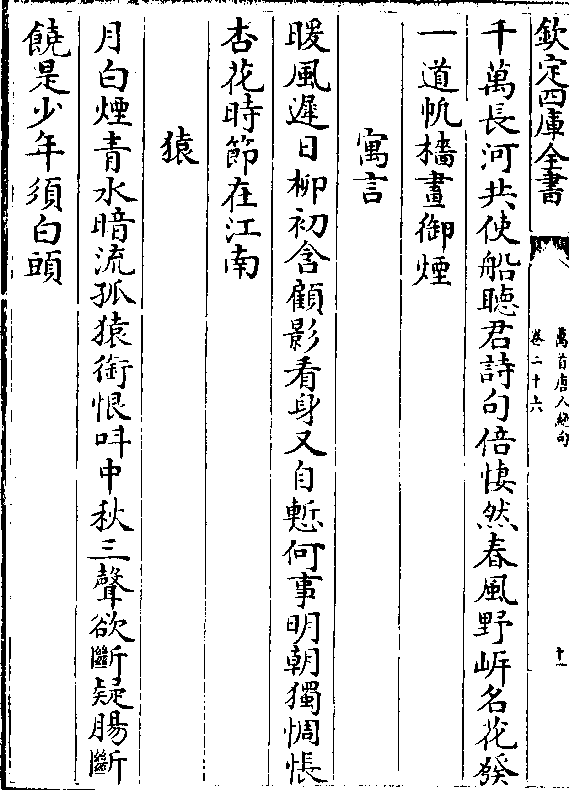 欽定四庫全書
萬首唐人絶句
卷二十六
十一
千萬長河共使船聽君詩句倍悽然春風野岸名花發
一道帆檣畫御煙
寓言
暖風遲日柳初含顧影看身又自慙何事明朝獨惆悵
杏花時節在江南
猿
月白煙青水暗流孤猿銜恨叫中秋三聲欲斷疑腸斷
饒是少年須白頭